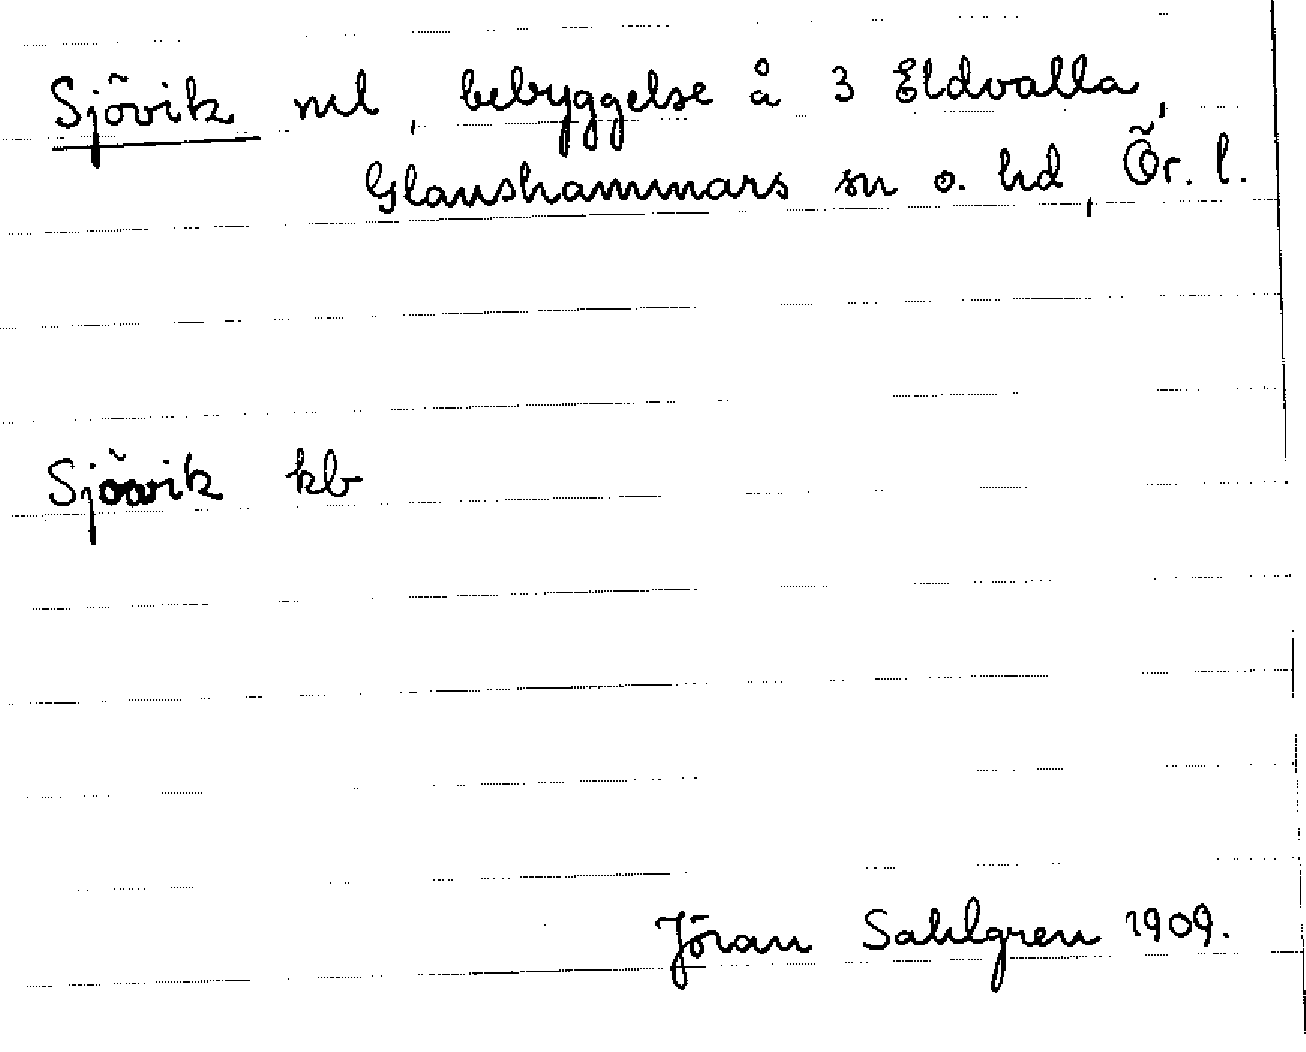 Sjövik nl, bebyggelse å 3 Eldvalla,
Glanshammars sn o. hd, Ör. l.
Sjövik kb
Jöran Sahlgren 1909.